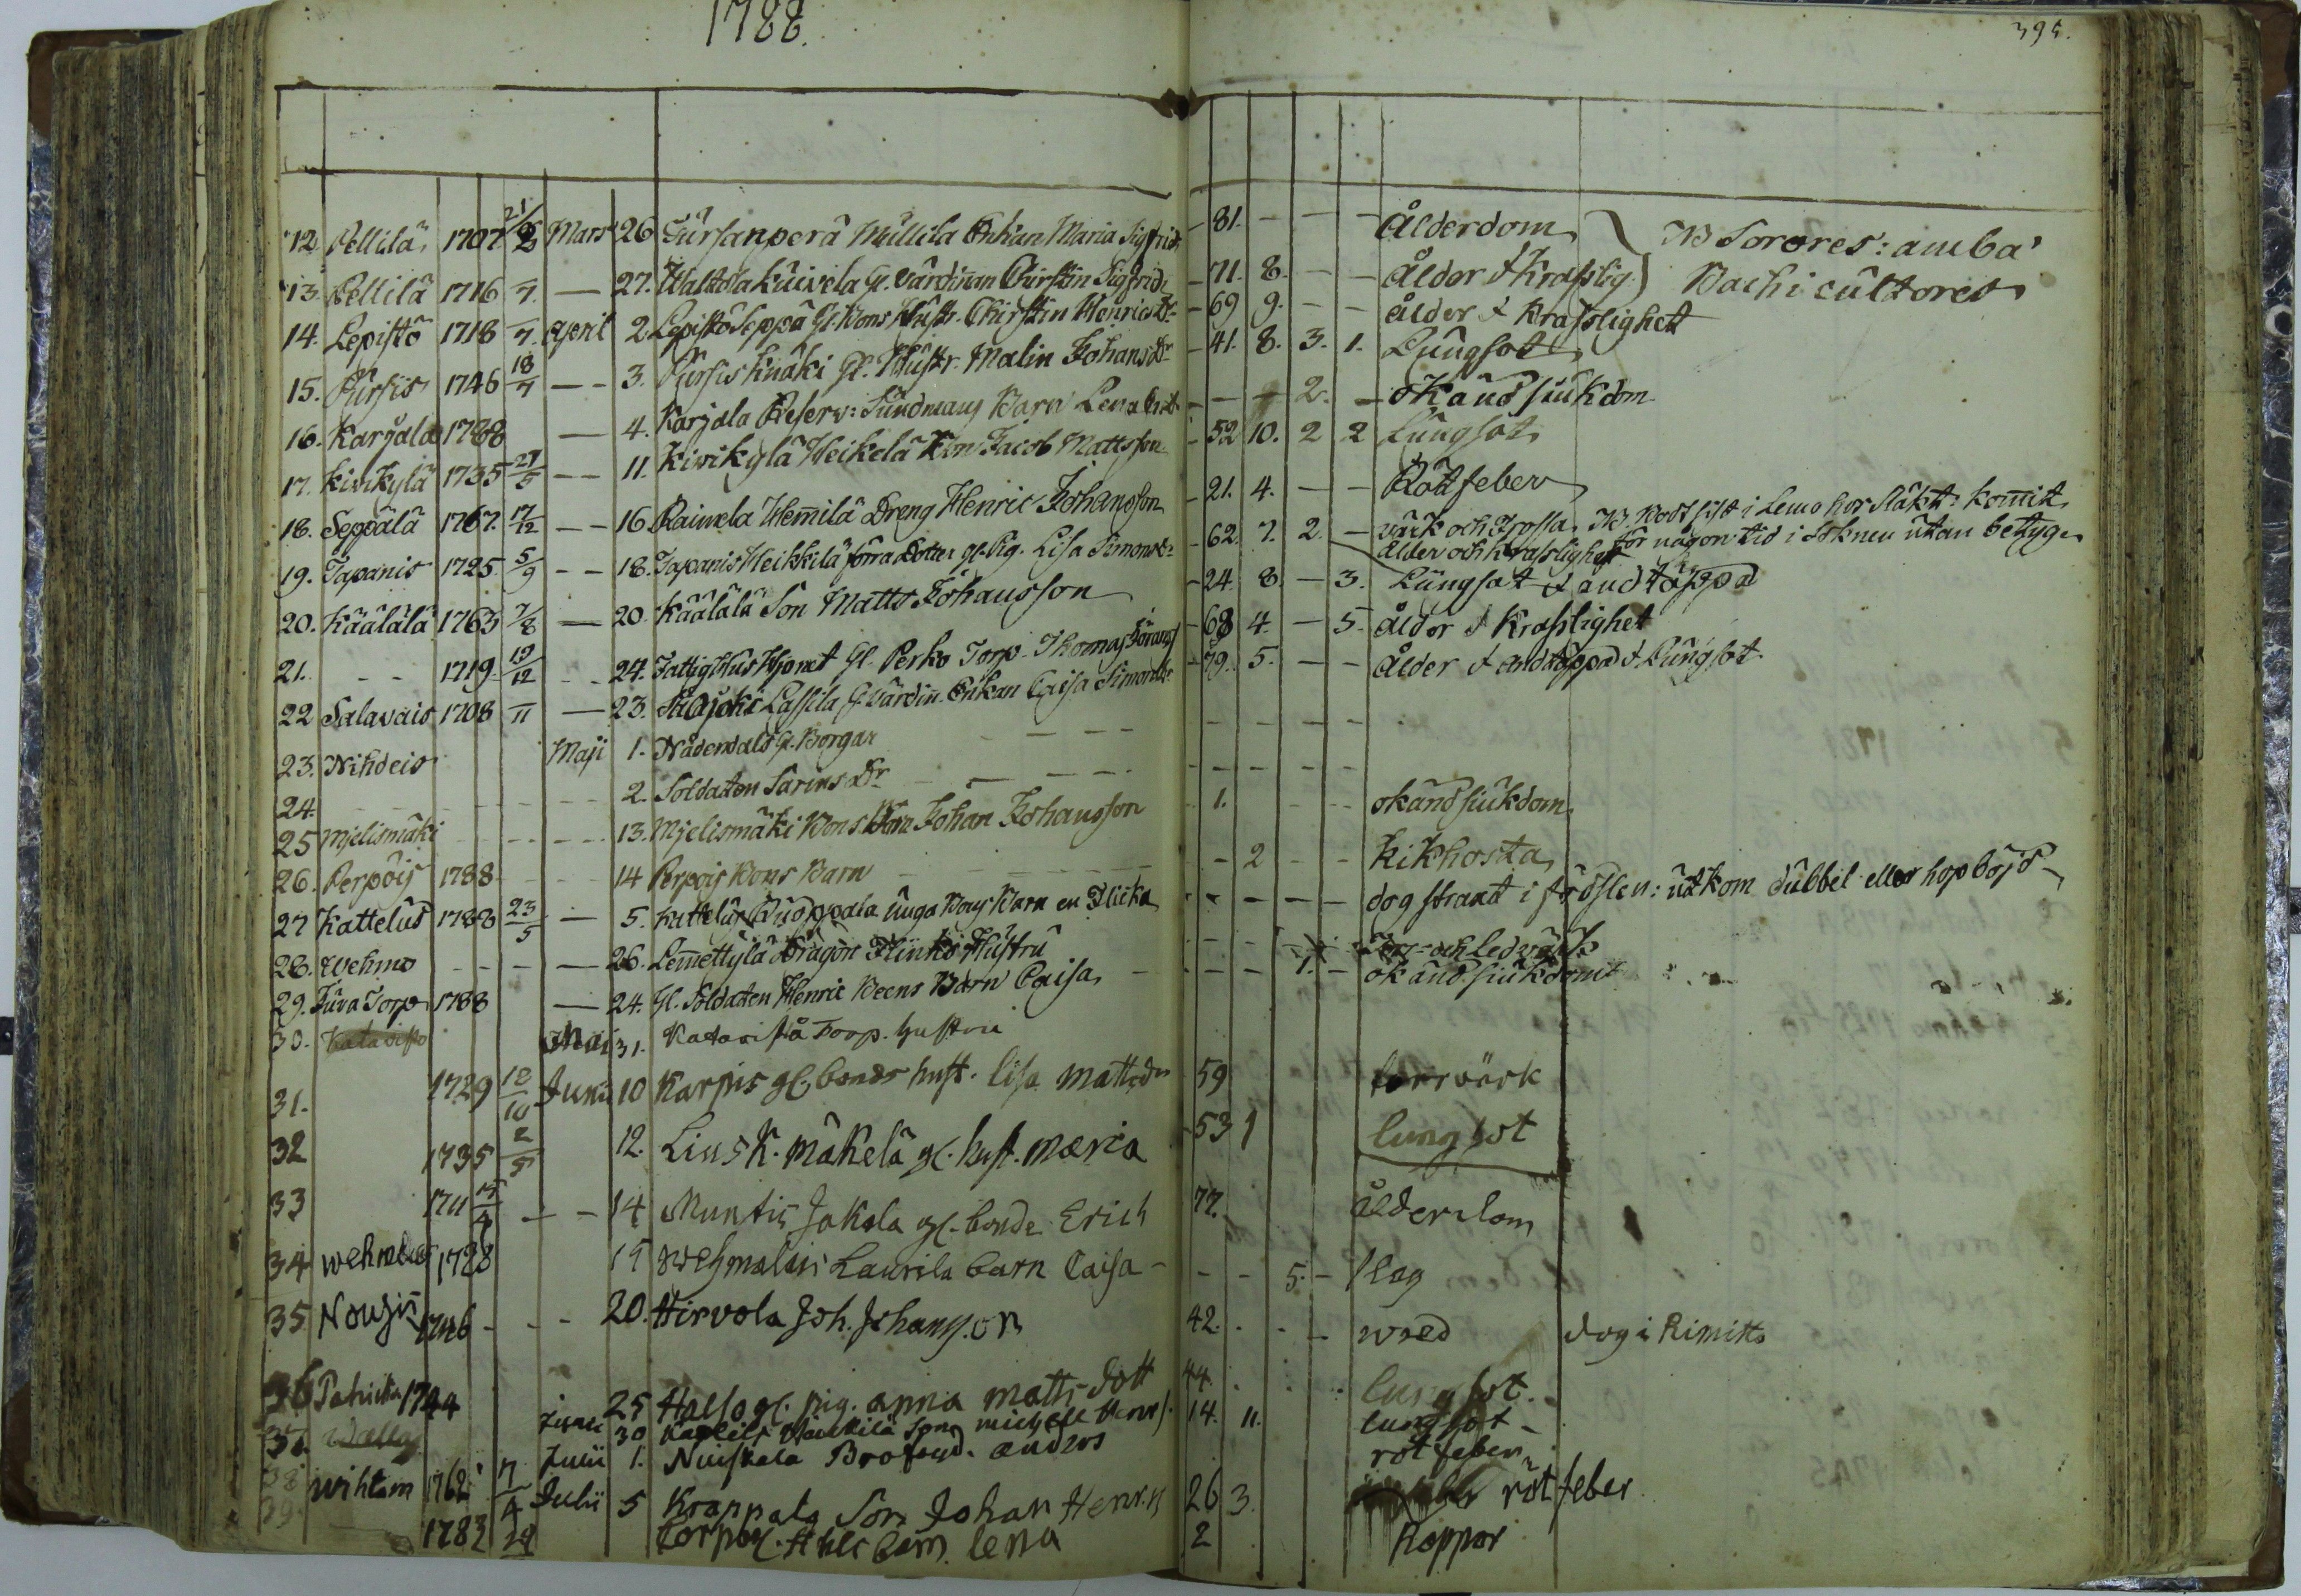 1788.
395.
12 Pellilä 1707 21/2 Mars 26 Mullila Enkan Maria Sigfrids 81. - - - Ålderdom NB Sorores: amba
13. Pellilä 1716 7. — 27. Gl. värdinnan Christin Sigfrids 71. 8. - - Ålder & Kraßlig. Bachi cultores
14. Lepistö 1718 7. April 2. Lepistö Seppä Gl. Bons Hustr. Christin Henrics Dr 69 9. - - ålder & Kraßlighet
15. 1746 18/7 — 3. Knäki Gl. Hustr. Malin Johans Dr 41. 8. 3. 1. Lungsot
16. Karjala 1788 — 4. Karjala Reserv: Sundmans Barn Lena - - - 2. - okänd siukdom
17. Kivikylä 1735 — 11. Kivikylä Heikelä Bon Jacob Mattsson 52 10. 2 2 Lungsot
18. Seppälä 1767. 17/12 — 16 Rainela Hemilä Dreng Henric Johansson 21. 4. - - Rötfeber
19. Tapanis 1725. 5/9 - - 18. Tapanis Heikkilä förra Dotter gl. Pig. Lisa Simonsdr 62. 7. 2. - värk och NB. Bodt sist i Lemo hos släkt: kommit
ålder och kraßlighet för någon tid i soknen utan betyg
20. Käälälä 1763 7/8 — 20. Käälälä Son Matts Johansson 24. 8. - 3. Lungsot & andtäppa
21. - - 1719. 19/12 - - 24. Fattighus Hjonet Gl. Perko Torp. Thomas Görans 68 4. - 5. ålder & Kraßlighet
22 Salavais 1708 11 — 23. Lassila Gl. värdinn. Enkan Caisa Simonsdr 79. 5. - - Ålder & andtäppa & Lungsot.
23. Nihdeis Maji 1. Nådendals Gl. Borgar - - - -
24. - - - 2. Soldaten Sarins Dr - - - -
25 Mjelismäki - - - 13. Mjelismäki Bons Barn Johan Johansson 1. - - okänd siukdom
26. Perpois 1788 - - - 14 Perpois Bons Barn - 2 - - Kikhosta
27 Kattelus 1788 23/5 — 5. Kattelus unga Bons Barn en Flicka - - - - dog strax i födslen: utkom dubbel eller hopböjd
28. Wehmo - - - — 26. Lemettylä Dragon Flinks Hustru - - - och ledvärk
29. Juva Torp 1788 — 24. Gl. Soldaten Henric Beens Barn Caisa - - - 1. - okänd siukdom
30. Kataristo Maj 31. Kataristå Torp. hustru
31. 1729 18/10 Junii 10 Karpis gl. bonds hust. Lisa Mattsdr 59 torrvärk
32 1735 2/5 12. Lius K. Mäkelä gl. hust. Maria 53 1 lungsot
33 1711 - - 14 Muntis Jakola gl. bonde Erich 77. ålderdom
34 1788 15 Wehmalais Laurila barn Caisa - - - 5. - slag
35 Nousis 1746 - - - 20. Hirvola Joh. Johansson 42. - - - wred dog i Rimitto
36 1744 Junii 25 Hallo gl. pig. Anna Matts dott 44. lungsot
37. Junii 30 Son Michell Henrs. 14. 11. lungsot
38 Julii 1. Nuiskala Anders rötfeber
39 Wihtam 1762 7/4 Julii 5 Krappala Son Johan Henr. 26 3. rötfeber
1783 barn Lena 2 Koppor